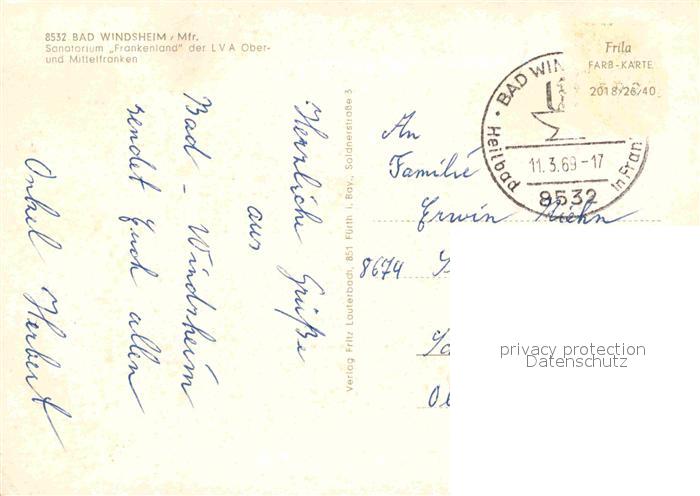 8532 BAD WINDSHEIM / Mfr.
Sanatorium „Frankenland" der LVA Ober-
und Mittelfranken
Herzliche Grüße
aus
Bad - Windsheim
sendet Euch allen
Onkel Herbert
Verlag Fritz Lauterbach, 851 Fürth i. Bay., Soldnerstraße 3
Frila
FARB-KARTE
2018/26/40
BAD WIN
11.3.69-17
8532
Heilbad in Fran
An
Familie
Erwin
8674
privacy protection
Datenschutz